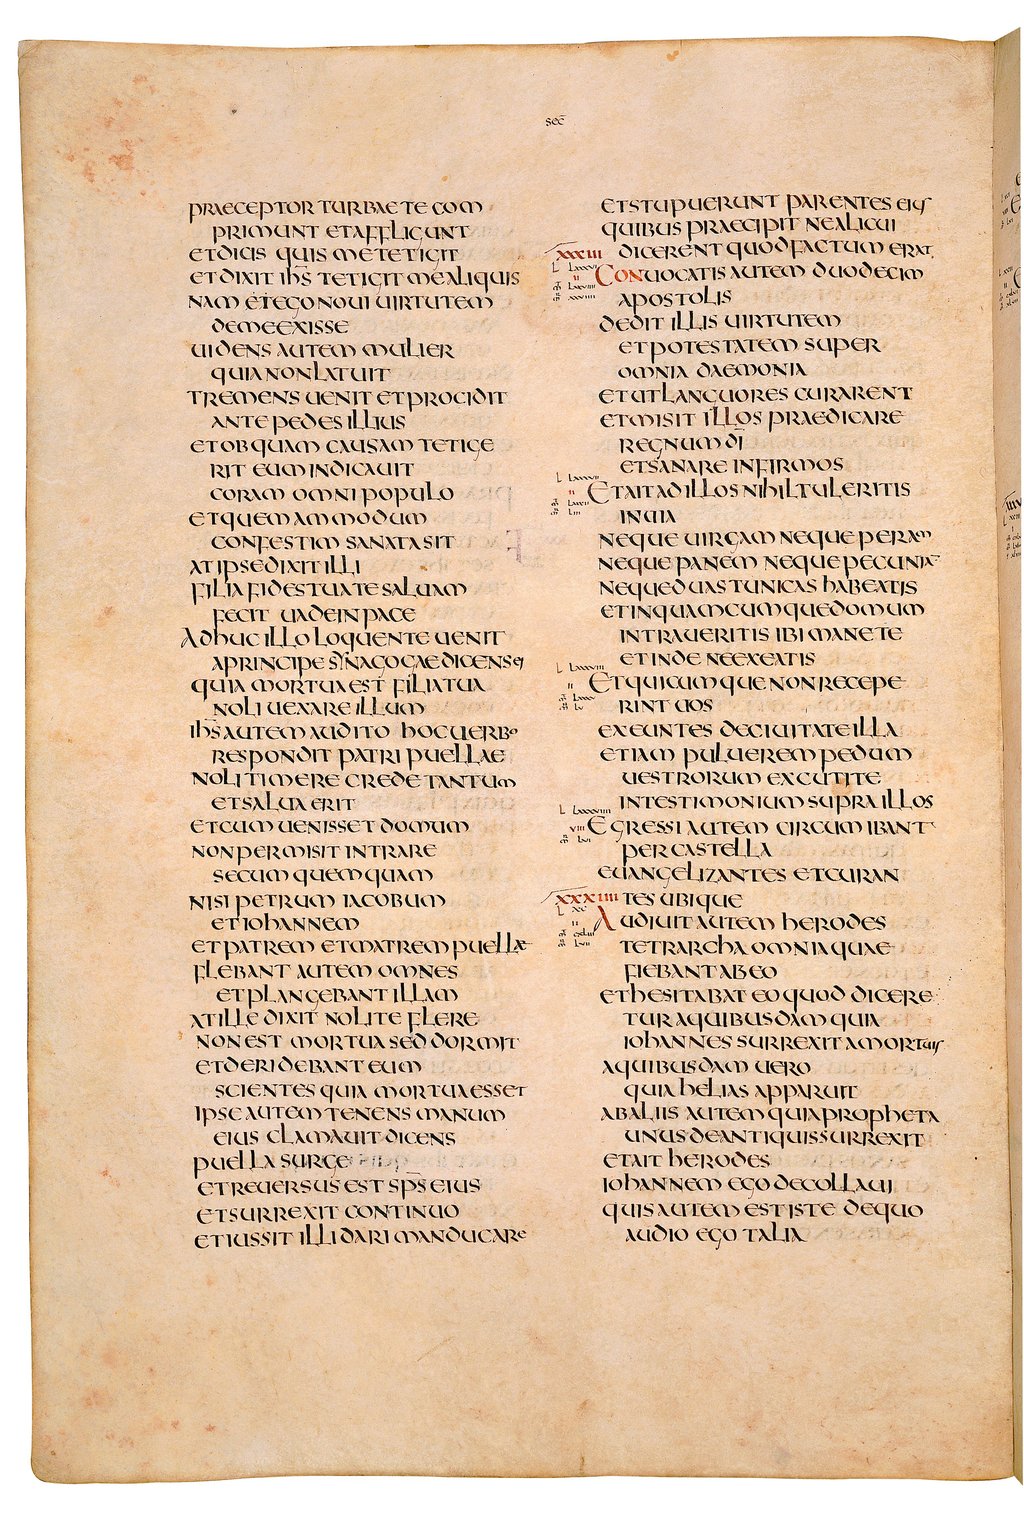 sec̅
PRAECEPTOR TURBAE TE COM
PRIMUNT ET AFFLIGUNT
ET DICIS QUIS ME TETIGIT
ET DIXIT IHS̅ TETIGIT ME ALIQUIS
NAM ET EGO NOUI UIRTUTEM
DE ME EXISSE
UIDENS AUTEM MULIER
QUIA NON LATUIT
TREMENS UENIT ET PROCIDIT
ANTE PEDES ILLIUS
ET OB QUAM CAUSAM TETIGE
RIT EUM INDICAUIT
CORAM OMNI POPULO
ET QUEMAMMODUM
CONFESTIM SANATA SIT
AT IPSE DIXIT ILLI
FILIA FIDES TUA TE SALUAM
FECIT UADE IN PACE
ADHUC ILLO LOQUENTE UENIT
A PRINCIPE SYNAGOGAE DICENS EI
QUIA MORTUA EST FILIA TUA
NOLI UEXARE ILLUM
IHS̅ AUTEM AUDITO HOC UERBO
RESPONDIT PATRI PUELLAE
NOLI TIMERE CREDE TANTUM
ET SALUA ERIT
ET CUM UENISSET DOMUM
NON PERMISIT INTRARE
SECUM QUEMQUAM
NISI PETRUM IACOBUM
ET IOHANNEM
ET PATREM ET MATREM PUELLAE
FLEBANT AUTEM OMNES
ET PLANGEBANT ILLAM
AT ILLE DIXIT NOLITE FLERE
NON EST MORTUA SED DORMIT
ET DERIDEBANT EUM
SCIENTES QUIA MORTUA ESSET
IPSE AUTEM TENENS MANUM
EIUS CLAMAUIT DICENS
PUELLA SURGE
ET REUERSUS EST SPS̅ EIUS
ET SURREXIT CONTINUO
ET IUSSIT ILLI DARI MANDUCARE
ET STUPUERUNT PARENTES EIUS
QUIBUS PRAECIPIT NE ALICUI
XXXIII DICERENT QUOD FACTUM ERAT
CONUOCATIS AUTEM DUODECIM
APOSTOLIS
DEDIT ILLIS UIRTUTEM
ET POTESTATEM SUPER
OMNIA DAEMONIA
ET UT LANGUORES CURARENT
ET MISIT ILLOS PRAEDICARE
REGNUM DI̅
ET SANARE INFIRMOS
ET AIT AD ILLOS NIHIL TULERITIS
IN UIA
NEQUE UIRGAM NEQUE PERAM
NEQUE PANEM NEQUE PECUNIA̅
NEQUE DUAS TUNICAS HABEATIS
ET IN QUAMCUMQUE DOMUM
INTRAUERITIS IBI MANETE
ET INDE NE EXEATIS
ET QUICUMQUE NON RECEPE
RINT UOS
EXEUNTES DE CIUITATE ILLA
ETIAM PULUEREM PEDUM
UESTRORUM EXCUTITE
IN TESTIMONIUM SUPRA ILLOS
EGRESSI AUTEM CIRCUMIBANT
PER CASTELLA
EUANGELIZANTES ET CURAN
XXXIIII TES UBIQUE
AUDIUIT AUTEM HERODES
TETRARCHA OMNIA QUAE
FIEBANT AB EO
ET HESITABAT EO QUOD DICERE
TUR A QUIBUSDAM QUIA
IOHANNES SURREXIT A MORTUIS
A QUIBUSDAM UERO
QUIA HELIAS APPARUIT
AB ALIIS AUTEM QUIA PROPHETA
UNUS DE ANTIQUIS SURREXIT
ET AIT HERODES
IOHANNEM EGO DECOLLAUI
QUIS AUTEM EST ISTE DE QUO
AUDIO EGO TALIA